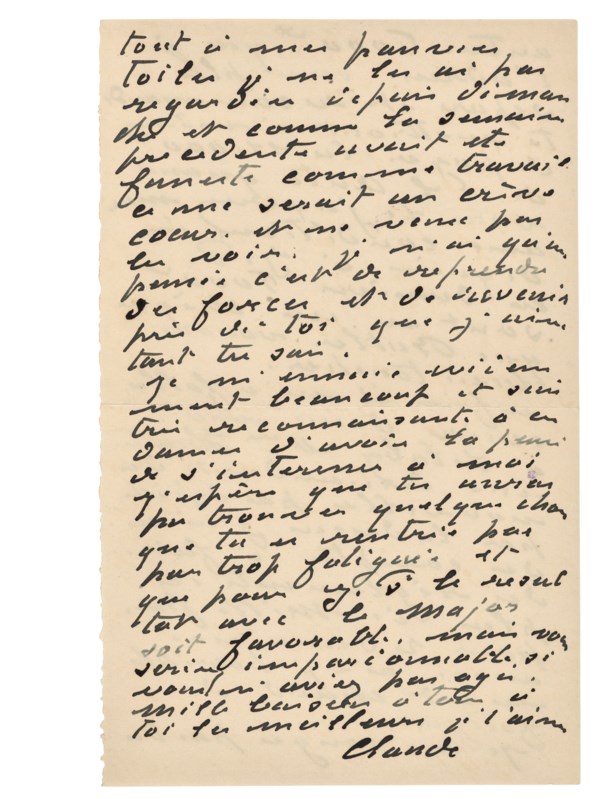 tout à mes pauvres
toiles je ne les ai pas
regardées depuis diman
che et comme la semaine
precedente avait été
funeste comme travail
ce me serait un crève
coeur. et ne veux pas
les voir. je n'ai qu'une
pensée c'est de reprendre
des forces et de revenir
près de toi que j'aime
tant tu sais.
Je m'ennuie ici
ment beaucoup et suis
très reconnaissante à ces
dames d'avoir la pensée
de s'interesser à moi
j'espère que tu auras
pu trouver quelque chose
que tu es rentrée pas
par trop fatiguée et
que pour le resul
tat avec le Major
soit favorable. mais vous
seriez impardonnable si
vous n'aviez pas agi.
mille baisers à tous à
toi les meilleurs je t'aime
Claude